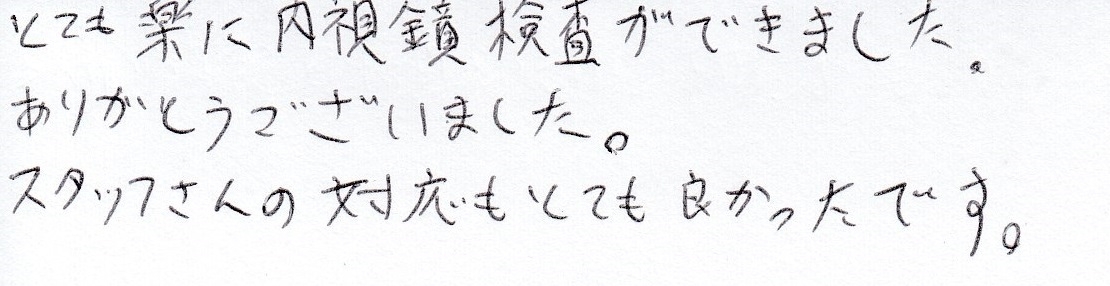 とても楽に内視鏡検査ができました。
ありがとうございました。
スタッフさんの対応もとても良かったです。